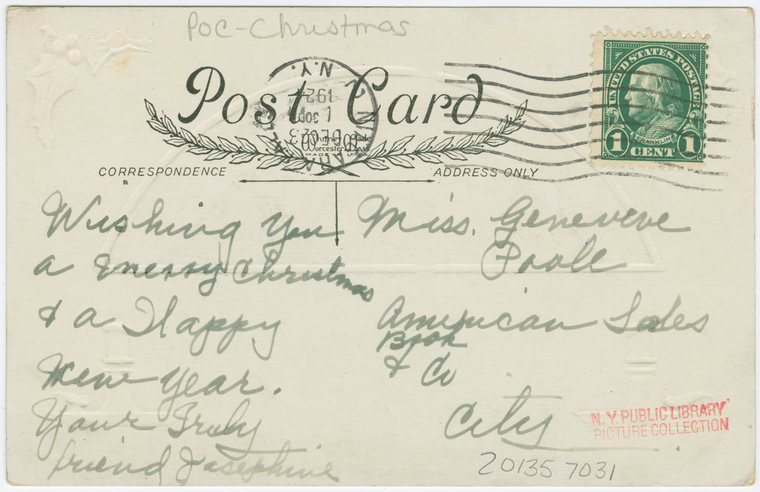 POC-Christmas
Post Card
N.Y.
192
1 30P
DEC 23
UNITED STATES POSTAGE
FRANKLIN
1 CENT 1
Worcester
CORRESPONDENCE
ADDRESS ONLY
Wishing You
a Merry Christmas
& a Happy
New Year.
Your Truly
friend Josephine
Miss. Genevieve
Poole
American Sales
Book
& Co
City
N.Y. PUBLIC LIBRARY
PICTURE COLLECTION
20135 7031